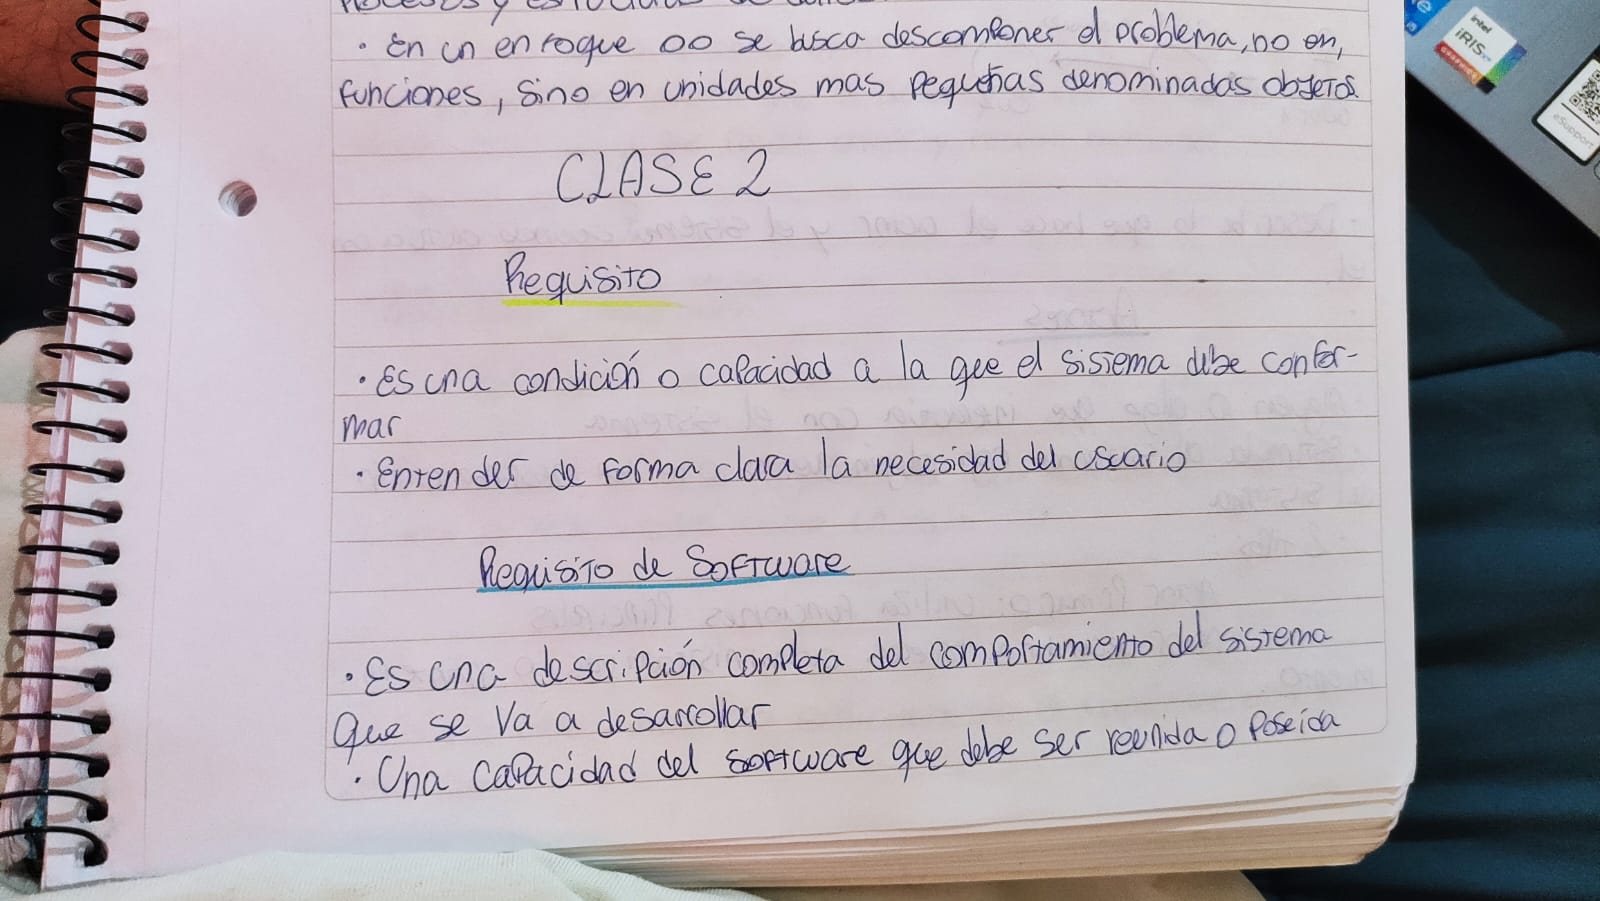 · En un enfoque OO se busca descomponer el problema, no en,
funciones, sino en unidades mas pequeñas denominadas objetos.
CLASE 2
Requisito
· Es una condición o capacidad a la que el sistema debe confor-
mar
· Entender de forma clara la necesidad del usuario
Requisito de Software
· Es una descripción completa del comportamiento del sistema
que se va a desarrollar
· Una capacidad del software que debe ser reunida o poseida
intel
iRIS
GRAPHICS
eSupport